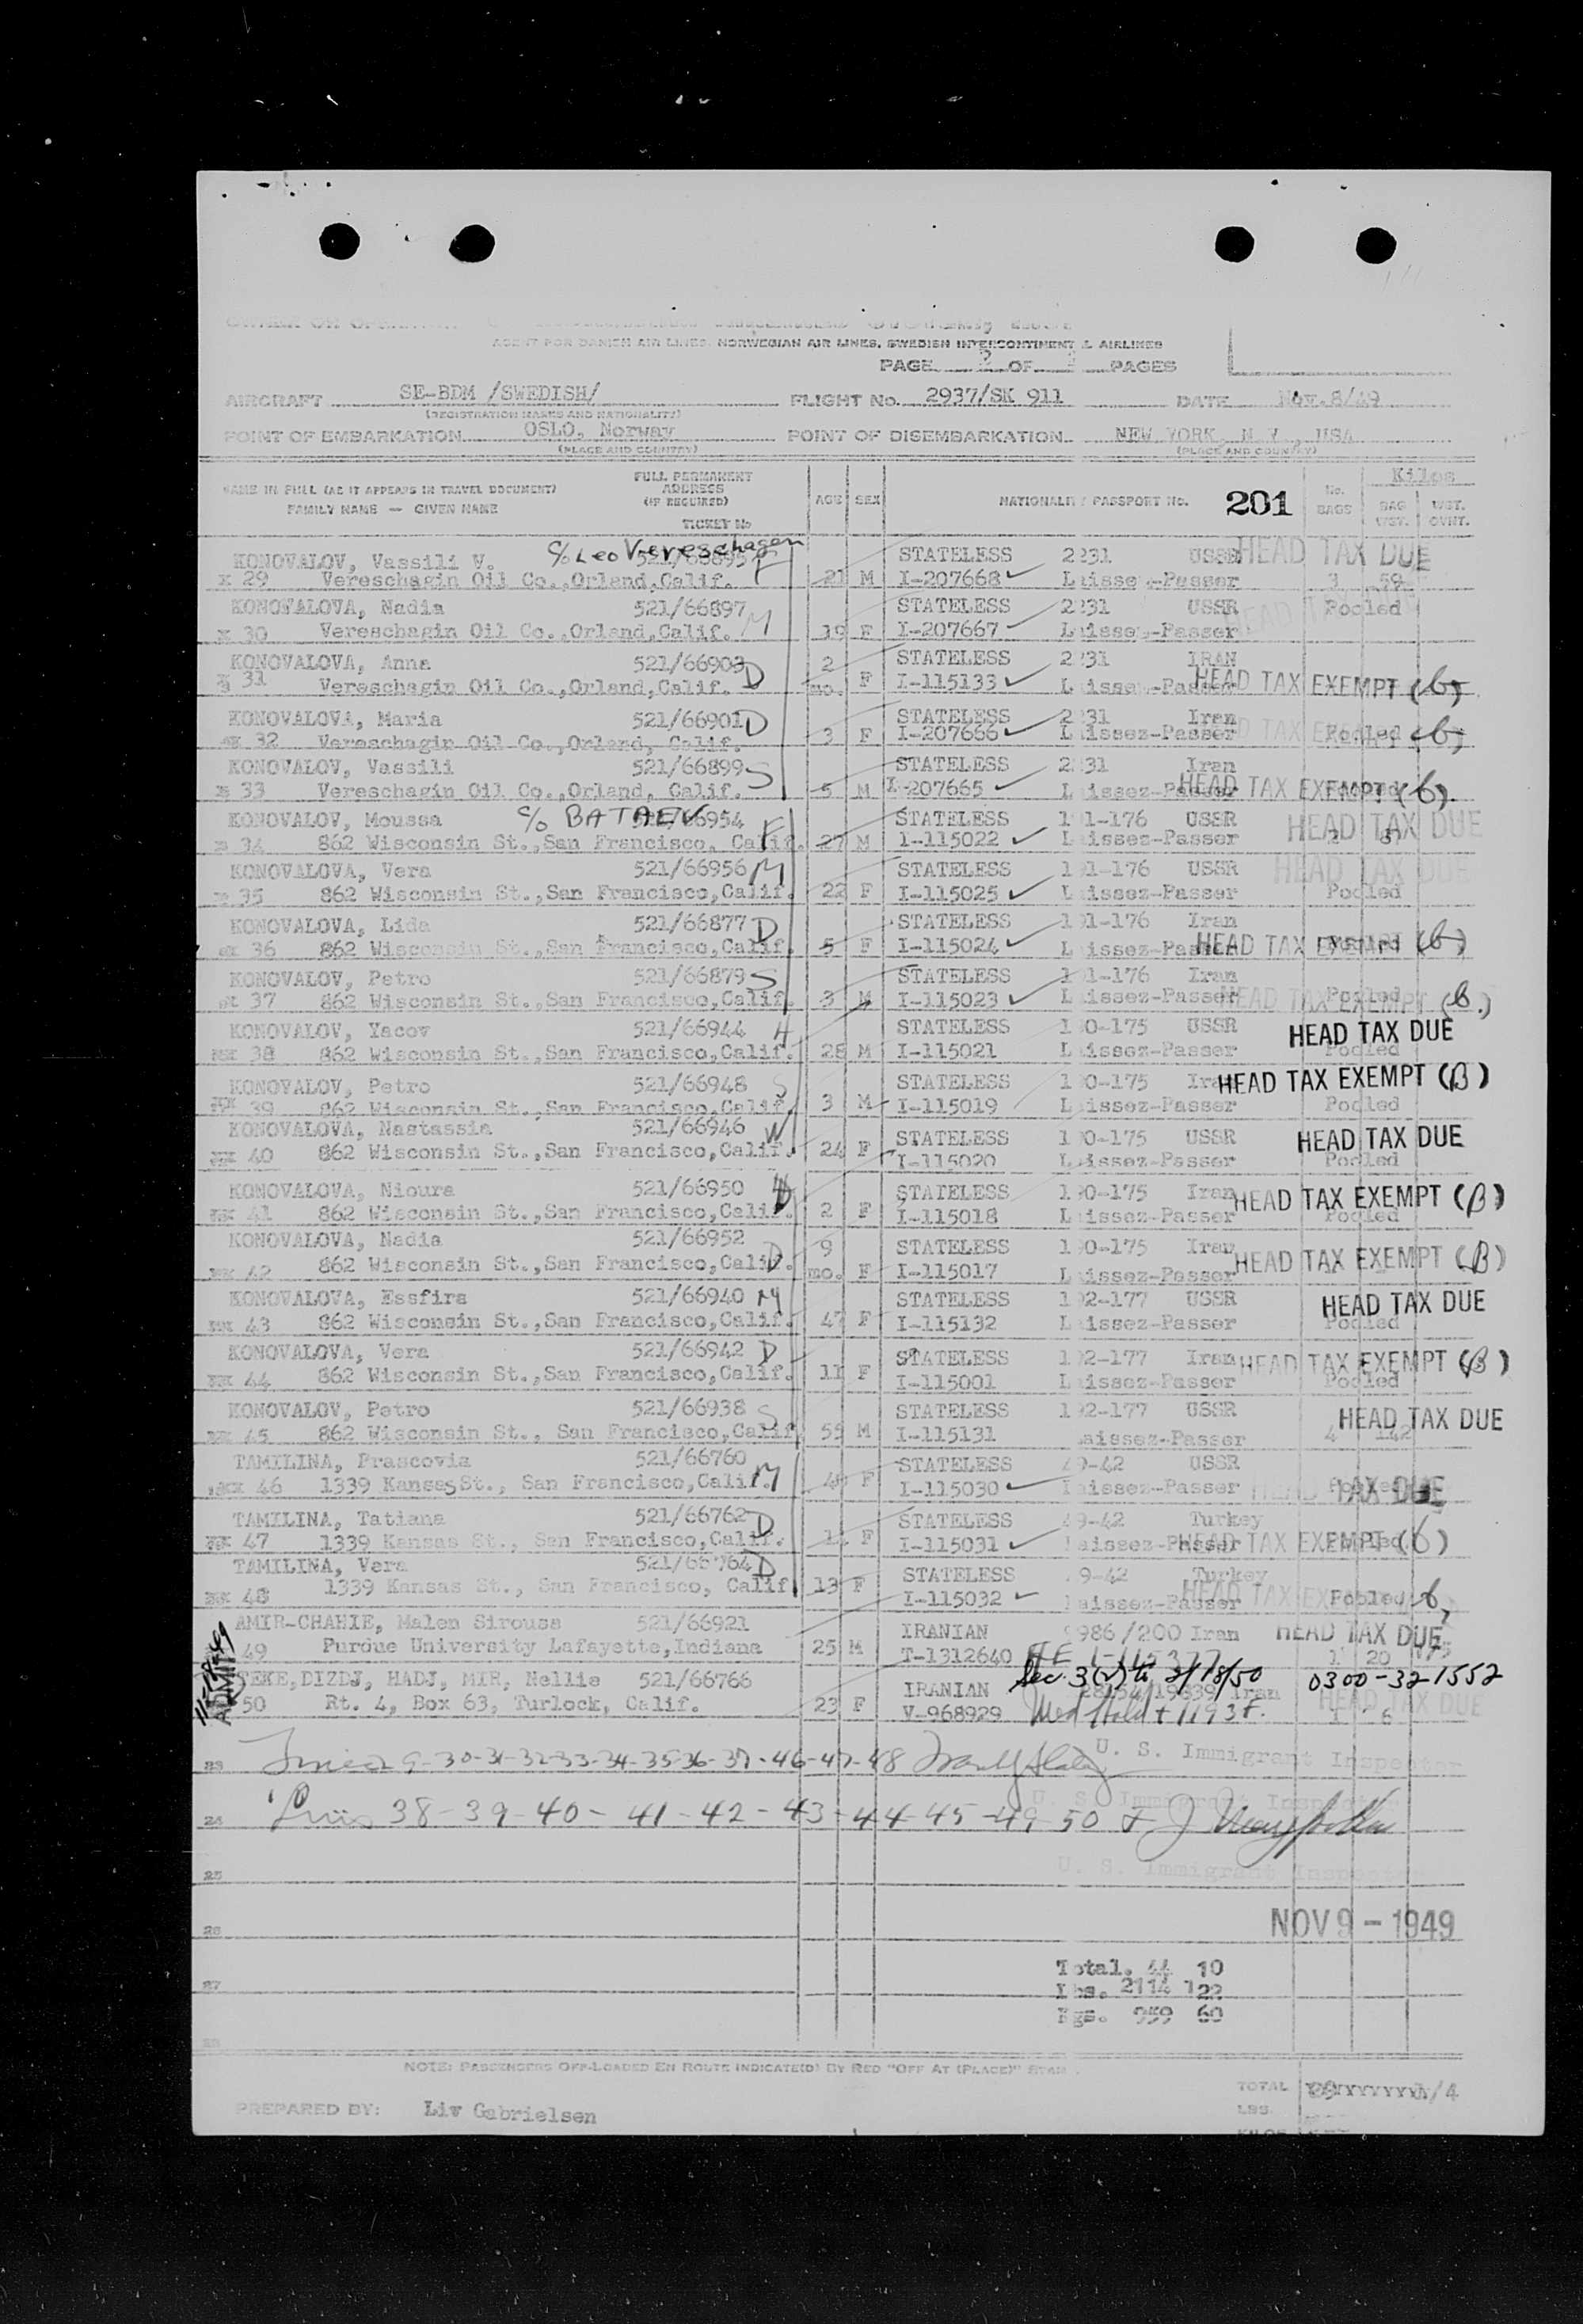 AGENT FOR DANISH AIR LINES, NORWEGIAN AIR LINES, SWEDISH INTERCONTINENTAL AIRLINES
PAGE 2 OF PAGES
AIRCRAFT SE-BDM /SWEDISH/ FLIGHT No. 2937/SK 911 DATE Nov. 8/49
(REGISTRATION MARKS AND NATIONALITY)
POINT OF EMBARKATION OSLO, Norway POINT OF DISEMBARKATION NEW YORK, N.Y., USA
(PLACE AND COUNTRY) (PLACE AND COUNTRY)
NAME IN FULL (AS IT APPEARS IN TRAVEL DOCUMENT)
FAMILY NAME — GIVEN NAME
FULL PERMANENT ADDRESS (IF REQUIRED)
TICKET No
AGE SEX NATIONALITY PASSPORT No. 201 No. BAGS Kilos BAG WGT.
c/o Leo Vereschagen
KONOVALOV, Vassili V. 521/66895 F STATELESS 2231 USSR HEAD TAX DUE
29 Vereschagin Oil Co.,Orland,Calif. 21 M I-207668 Laissez-Passer 3 59
KONOVALOVA, Nadia 521/66897 M STATELESS 2231 USSR Pooled
30 Vereschagin Oil Co.,Orland,Calif. 19 F I-207667 Laissez-Passer
KONOVALOVA, Anna 521/66903 D 2 STATELESS 2231 IRAN
31 Vereschagin Oil Co.,Orland,Calif. mo. F I-115133 Laissez-Passer HEAD TAX EXEMPT (b)
KONOVALOVA, Maria 521/66901 D STATELESS 2231 Iran
32 Vereschagin Oil Co.,Orland, Calif. 3 F I-207666 Laissez-Passer Pooled (b)
KONOVALOV, Vassili 521/66899 S STATELESS 2231 Iran
33 Vereschagin Oil Co.,Orland, Calif. 5 M I-207665 Laissez-Passer HEAD TAX EXEMPT (b)
KONOVALOV, Moussa c/o BATAEV 521/66954 F STATELESS 191-176 USSR HEAD TAX DUE
34 862 Wisconsin St.,San Francisco, Calif. 27 M I-115022 Laissez-Passer
KONOVALOVA, Vera 521/66956 M STATELESS 191-176 USSR HEAD TAX DUE
35 862 Wisconsin St.,San Francisco,Calif. 22 F I-115025 Laissez-Passer Pooled
KONOVALOVA, Lida 521/66877 D STATELESS 191-176 Iran
36 862 Wisconsin St.,San Francisco,Calif. 5 F I-115024 Laissez-Passer HEAD TAX EXEMPT (b)
KONOVALOV, Petro 521/66879 S STATELESS 191-176 Iran Pooled
37 862 Wisconsin St.,San Francisco,Calif. 3 M I-115023 Laissez-Passer HEAD TAX EXEMPT (b.)
KONOVALOV, Yacov 521/66944 H STATELESS 190-175 USSR HEAD TAX DUE
38 862 Wisconsin St.,San Francisco,Calif. 28 M I-115021 Laissez-Passer Pooled
KONOVALOV, Petro 521/66948 S STATELESS 190-175 Iran HEAD TAX EXEMPT (B)
39 862 Wisconsin St.,San Francisco,Calif. 3 M I-115019 Laissez-Passer Pooled
KONOVALOVA, Nastassia 521/66946 W STATELESS 190-175 USSR HEAD TAX DUE
40 862 Wisconsin St.,San Francisco,Calif. 24 F I-115020 Laissez-Passer Pooled
KONOVALOVA, Nioura 521/66950 D STATELESS 190-175 Iran HEAD TAX EXEMPT (B)
41 862 Wisconsin St.,San Francisco,Calif. 2 F I-115018 Laissez-Passer Pooled
KONOVALOVA, Nadia 521/66952 9 STATELESS 190-175 Iran HEAD TAX EXEMPT (B)
42 862 Wisconsin St.,San Francisco,Calif. D mo. F I-115017 Laissez-Passer
KONOVALOVA, Essfira 521/66940 M STATELESS 192-177 USSR HEAD TAX DUE
43 862 Wisconsin St.,San Francisco,Calif. 47 F I-115132 Laissez-Passer Pooled
KONOVALOVA, Vera 521/66942 D STATELESS 192-177 Iran HEAD TAX EXEMPT (B)
44 862 Wisconsin St.,San Francisco,Calif. 11 F I-115001 Laissez-Passer Pooled
KONOVALOV, Petro 521/66938 S STATELESS 192-177 USSR HEAD TAX DUE
45 862 Wisconsin St., San Francisco,Calif. 55 M I-115131 Laissez-Passer 4 142
TAMILINA, Prascovia 521/66760 M STATELESS 49-42 USSR
46 1339 Kansas St., San Francisco,Calif. F I-115030 Laissez-Passer HEAD TAX DUE
TAMILINA, Tatiana 521/66762 D STATELESS 49-42 Turkey
47 1339 Kansas St., San Francisco,Calif. F I-115031 Laissez-Passer HEAD TAX EXEMPT (b)
TAMILINA, Vera 521/66764 D STATELESS 49-42 Turkey
48 1339 Kansas St., San Francisco, Calif 13 F I-115032 Laissez-Passer HEAD TAX Pooled b
AMIR-CHAHIE, Malen Sirouss 521/66921 IRANIAN 986/200 Iran HEAD TAX DUE
49 Purdue University Lafayette,Indiana 25 M T-1312640 1 20
ADMITS
TEKE,DIZDJ, HADJ, MIR, Nellie 521/66766 IRANIAN Iran 0300-321552
50 Rt. 4, Box 63, Turlock, Calif. 23 F V-968929 HEAD TAX DUE 1 6
23 30-31-32-33-34-35-36-37-46-47-48 U. S. Immigrant Inspector
24 38-39-40-41-42-43-44-45-49-50 U. S. Immigrant Inspector
25 U. S. Immigrant Inspector
26 NOV 9 - 1949
Total. 44 10
27 Lbs. 2114 122
Kgs. 959 60
28
NOTE: PASSENGERS OFF-LOADED EN ROUTE INDICATE(D) BY RED "OFF AT (PLACE)" STAMP
TOTAL
PREPARED BY: Liv Gabrielsen LBS.
KILOS